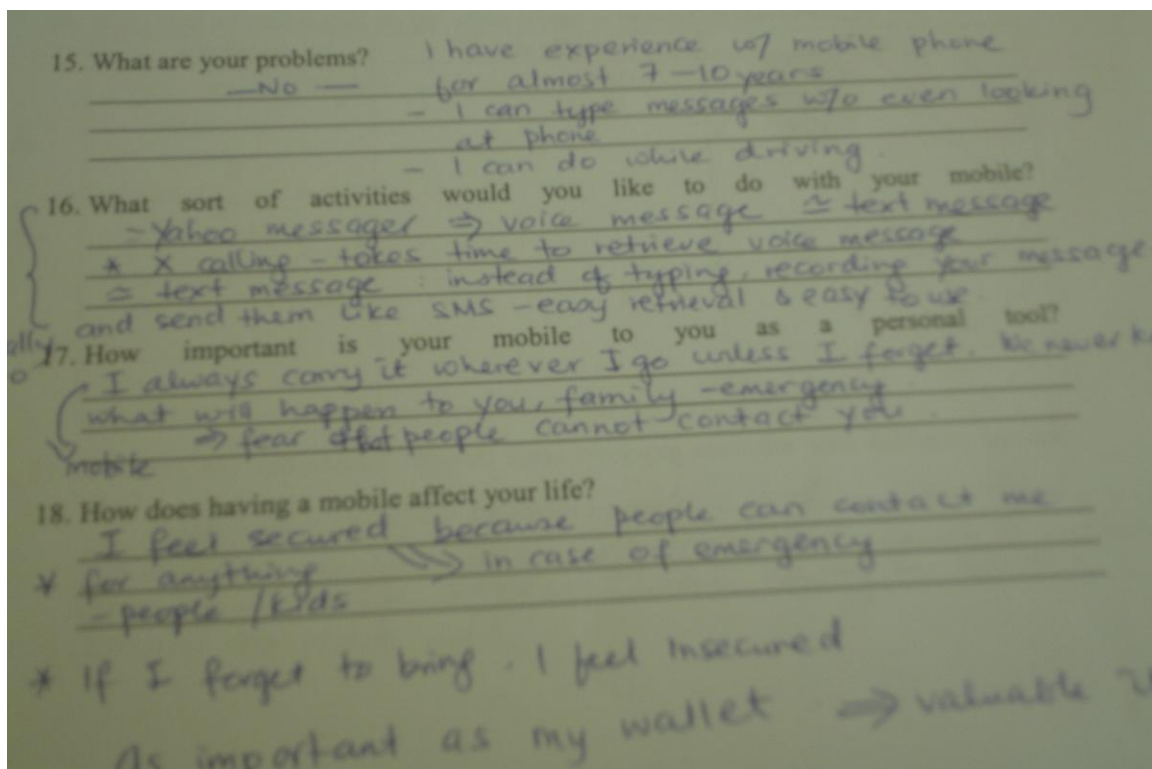 15. What are your problems? I have experience w/ mobile phone
— No — for almost 7 – 10 years
- I can type messages w/o even looking
at phone
- I can do while driving.
16. What sort of activities would you like to do with your mobile?
- Yahoo messager ⇒ voice message ≃ text message
* X calling – takes time to retrieve voice message
≃ text message : instead of typing, recording your message
and send them like SMS – easy retrieval & easy to use.
17. How important is your mobile to you as a personal tool?
I always carry it wherever I go unless I forget. We never
what will happen to you, family – emergency.
⇒ fear that people cannot contact you.
mobile
18. How does having a mobile affect your life?
I feel secured because people can contact me
* for anything ⇒ in case of emergency
- people / kids
* If I forget to bring. I feel insecured
As important as my wallet ⇒ valuable